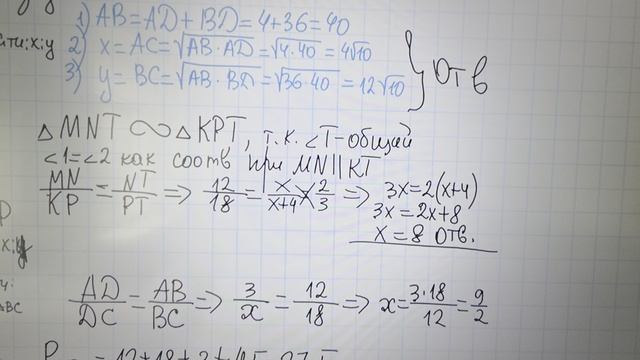 1) AB=AD+BD=4+36=40
йти: x; y 2) x=AC=√AB·AD=√4·40=4√10
3) y=BC=√AB·BD=√36·40=12√10
} Отв
△MNT ∽ △KPT, т.к. ∠T-общий
∠1=∠2 как соотв при MN||KT
MN/KP=NT/PT => 12/18=x/x+4 2/3 => 3x=2(x+4)
3x=2x+8
x=8 отв.
x; y
AD/DC=AB/BC => 3/x=12/18 => x=3·18/12=9/2
ABC